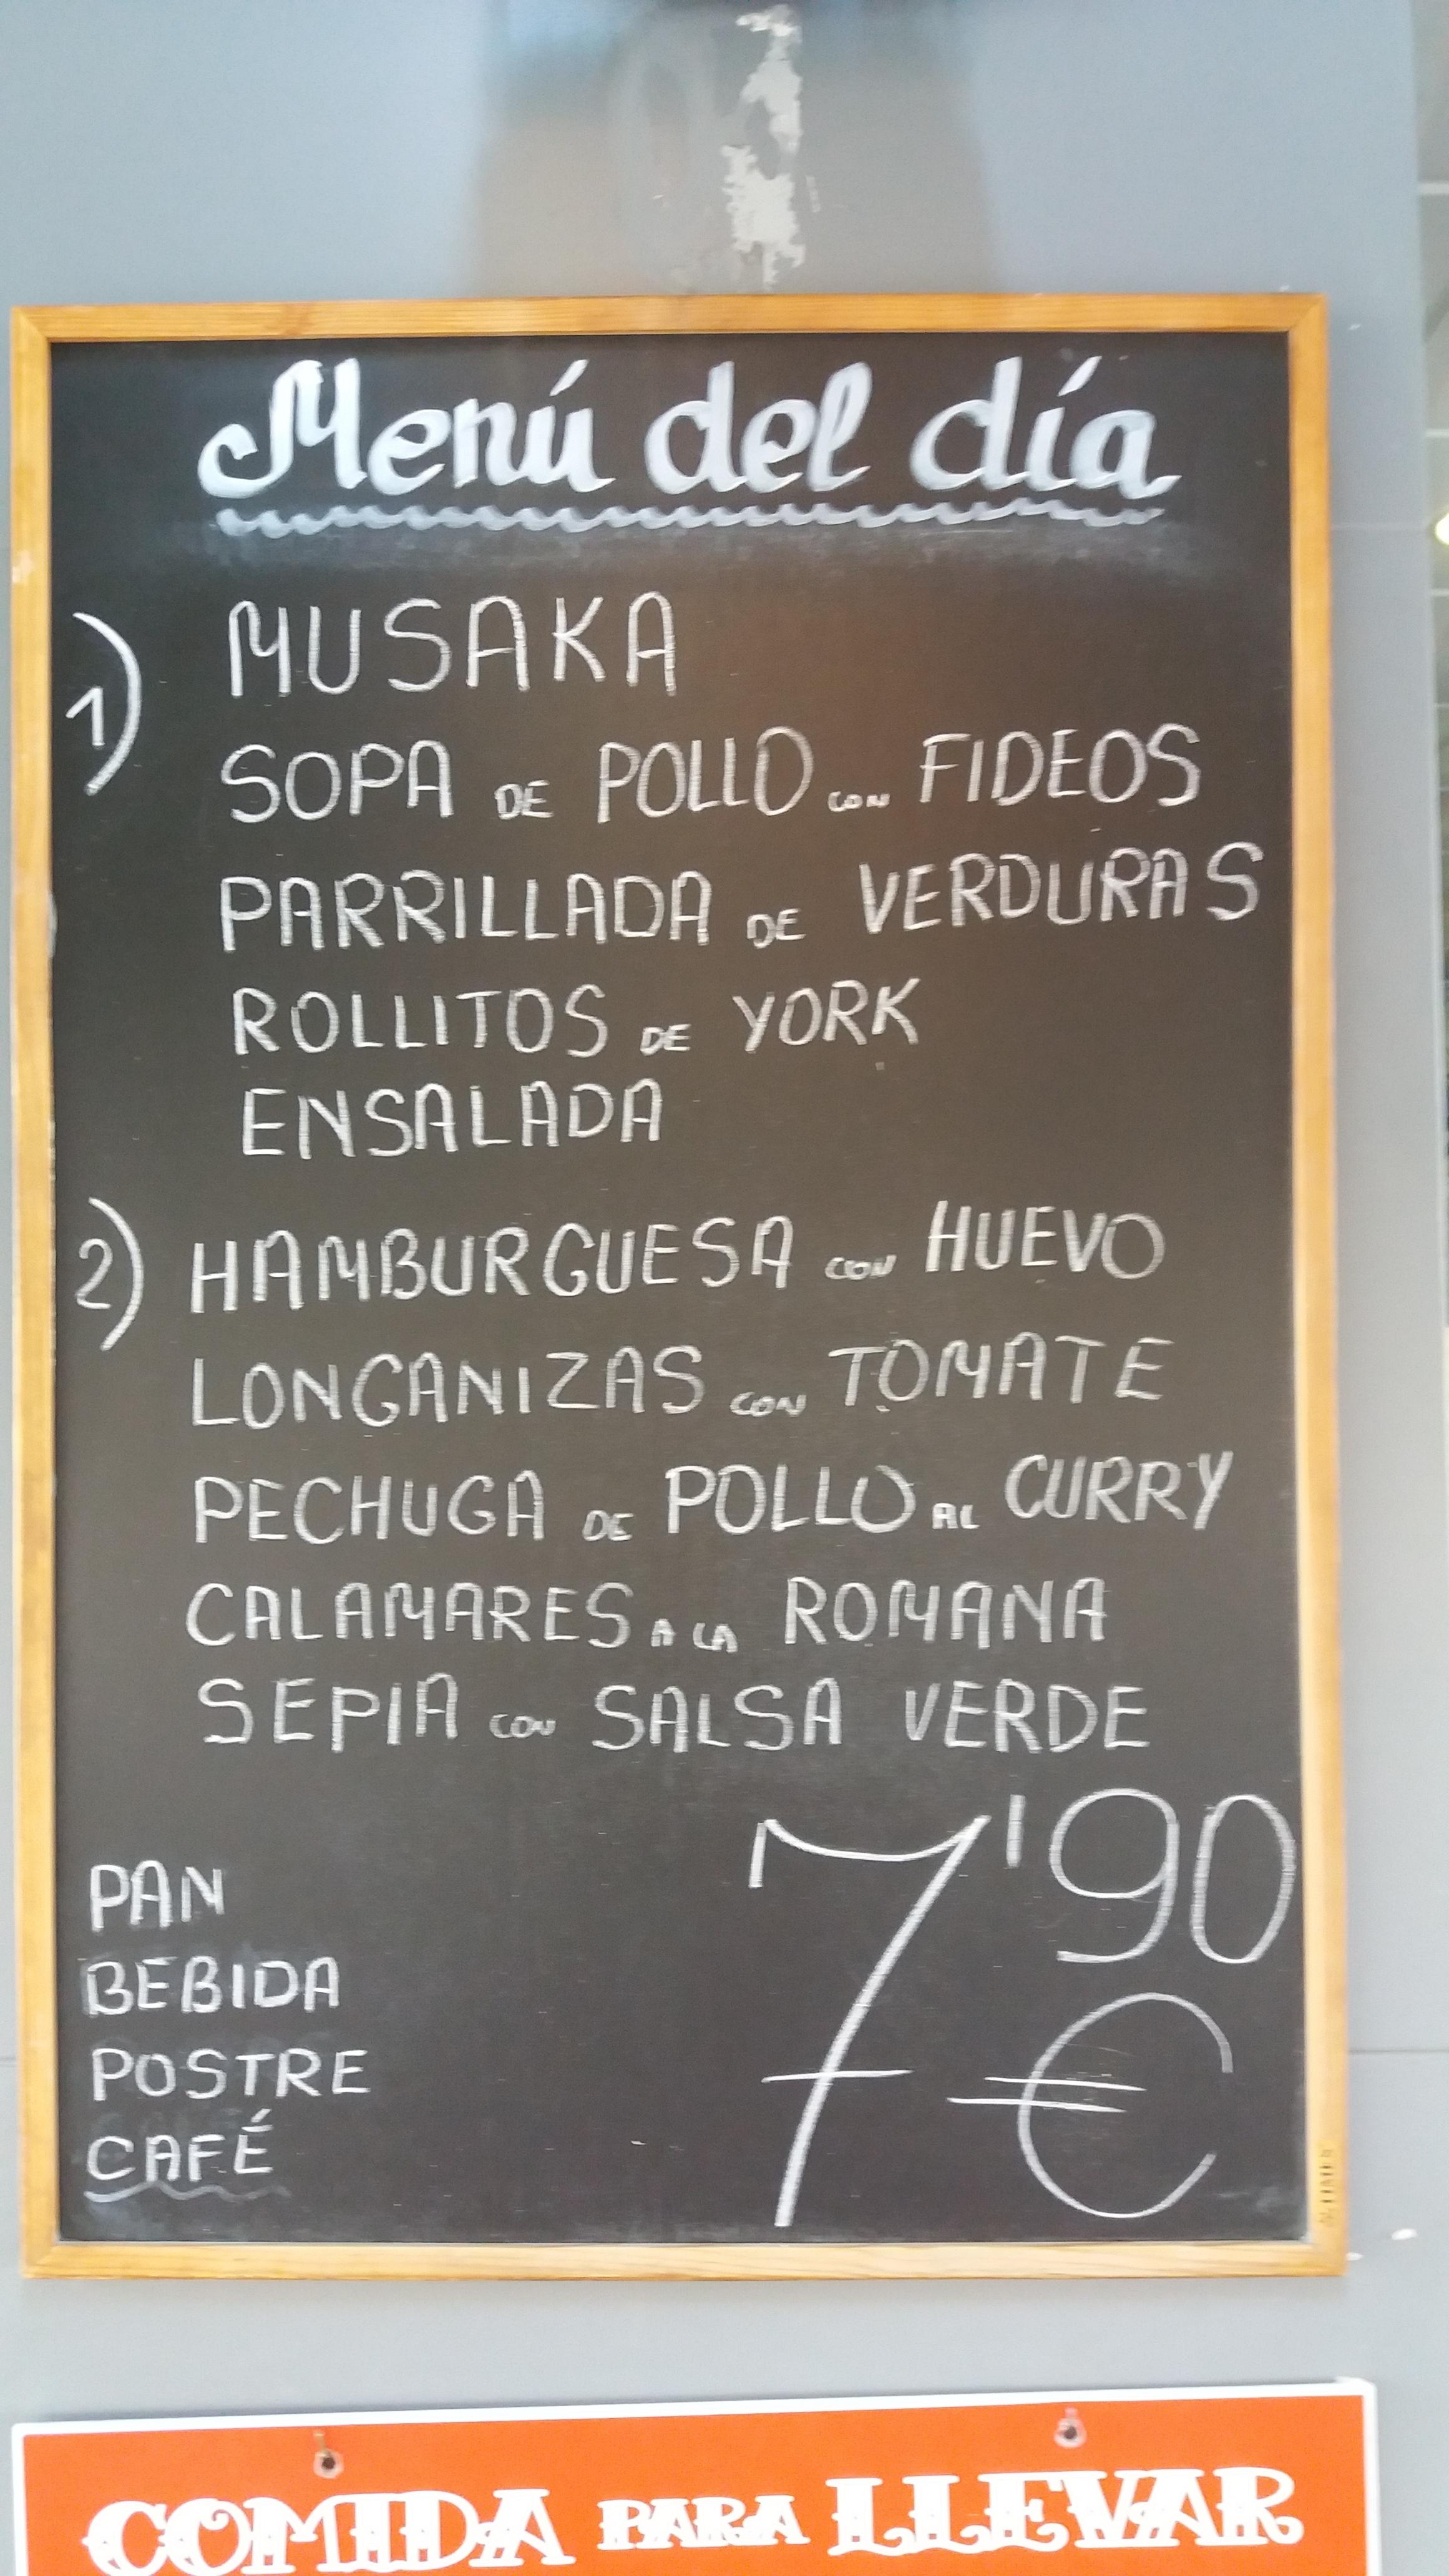 Menú del día
1) MUSAKA
SOPA DE POLLO CON FIDEOS
PARRILLADA DE VERDURAS
ROLLITOS DE YORK
ENSALADA
2) HAMBURGUESA CON HUEVO
LONGANIZAS CON TOMATE
PECHUGA DE POLLO AL CURRY
CALAMARES A LA ROMANA
SEPIA CON SALSA VERDE
PAN
BEBIDA
POSTRE
CAFÉ
7'90
€
COMIDA PARA LLEVAR